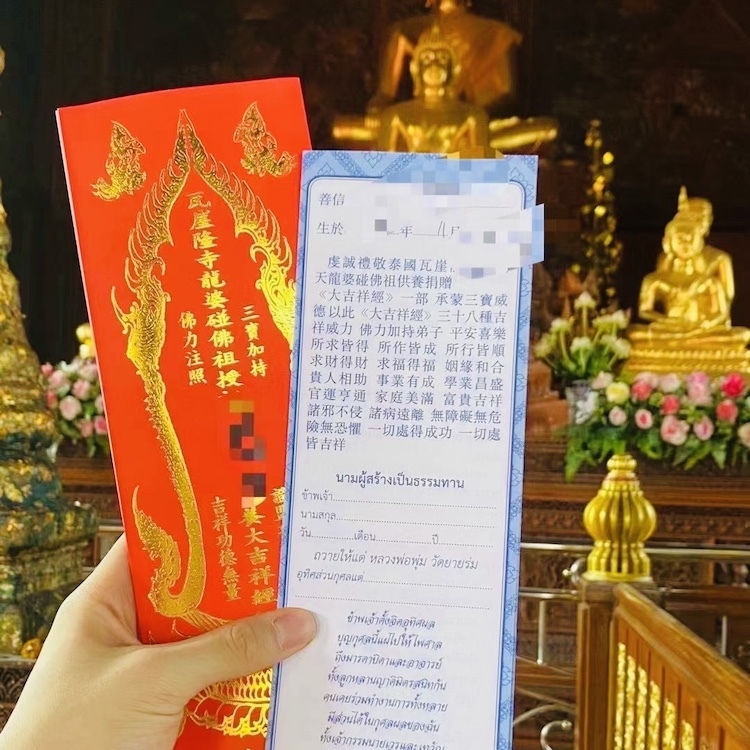 瓦崖隆寺龍婆碰佛祖授
三寶加持
佛力注照
婆大吉祥經
吉祥功德無量
善信
生於 年 11月
虔誠禮敬泰國瓦崖
天龍婆碰佛祖供養捐贈
《大吉祥經》一部 承蒙三寶威
德以此《大吉祥經》三十八種吉
祥威力 佛力加持弟子 平安喜樂
所求皆得 所作皆成 所行皆順
求財得財 求福得福 姻緣和合
貴人相助 事業有成 學業昌盛
官運亨通 家庭美滿 富貴吉祥
諸邪不侵 諸病遠離 無障礙無危
險無恐懼 一切處得成功 一切處
皆吉祥
นามผู้สร้างเป็นธรรมทาน
ข้าพเจ้า
นามสกุล
วัน เดือน ปี
ถวายให้แด่ หลวงพ่อพุ่ม วัดยายร่ม
อุทิศส่วนกุศลแด่
ข้าพเจ้าตั้งจิตอุทิศผล
บุญกุศลนี้แผ่ไปให้ไพศาล
ถึงมารดาบิดาและอาจารย์
ทั้งลูกหลานญาติมิตรสนิทกัน
คนเคยร่วมทำงานการทั้งหลาย
มีส่วนได้ในกุศลผลของฉัน
ทั้งเจ้ากรรมนายเวรและเทวัญ